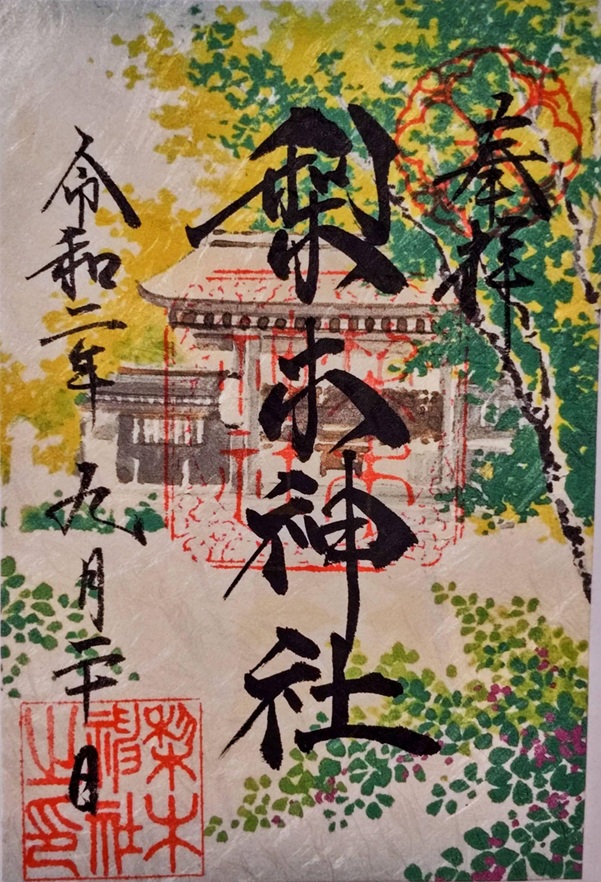 奉拝
梨木神社
令和二年九月二十日
梨木
神社
之印